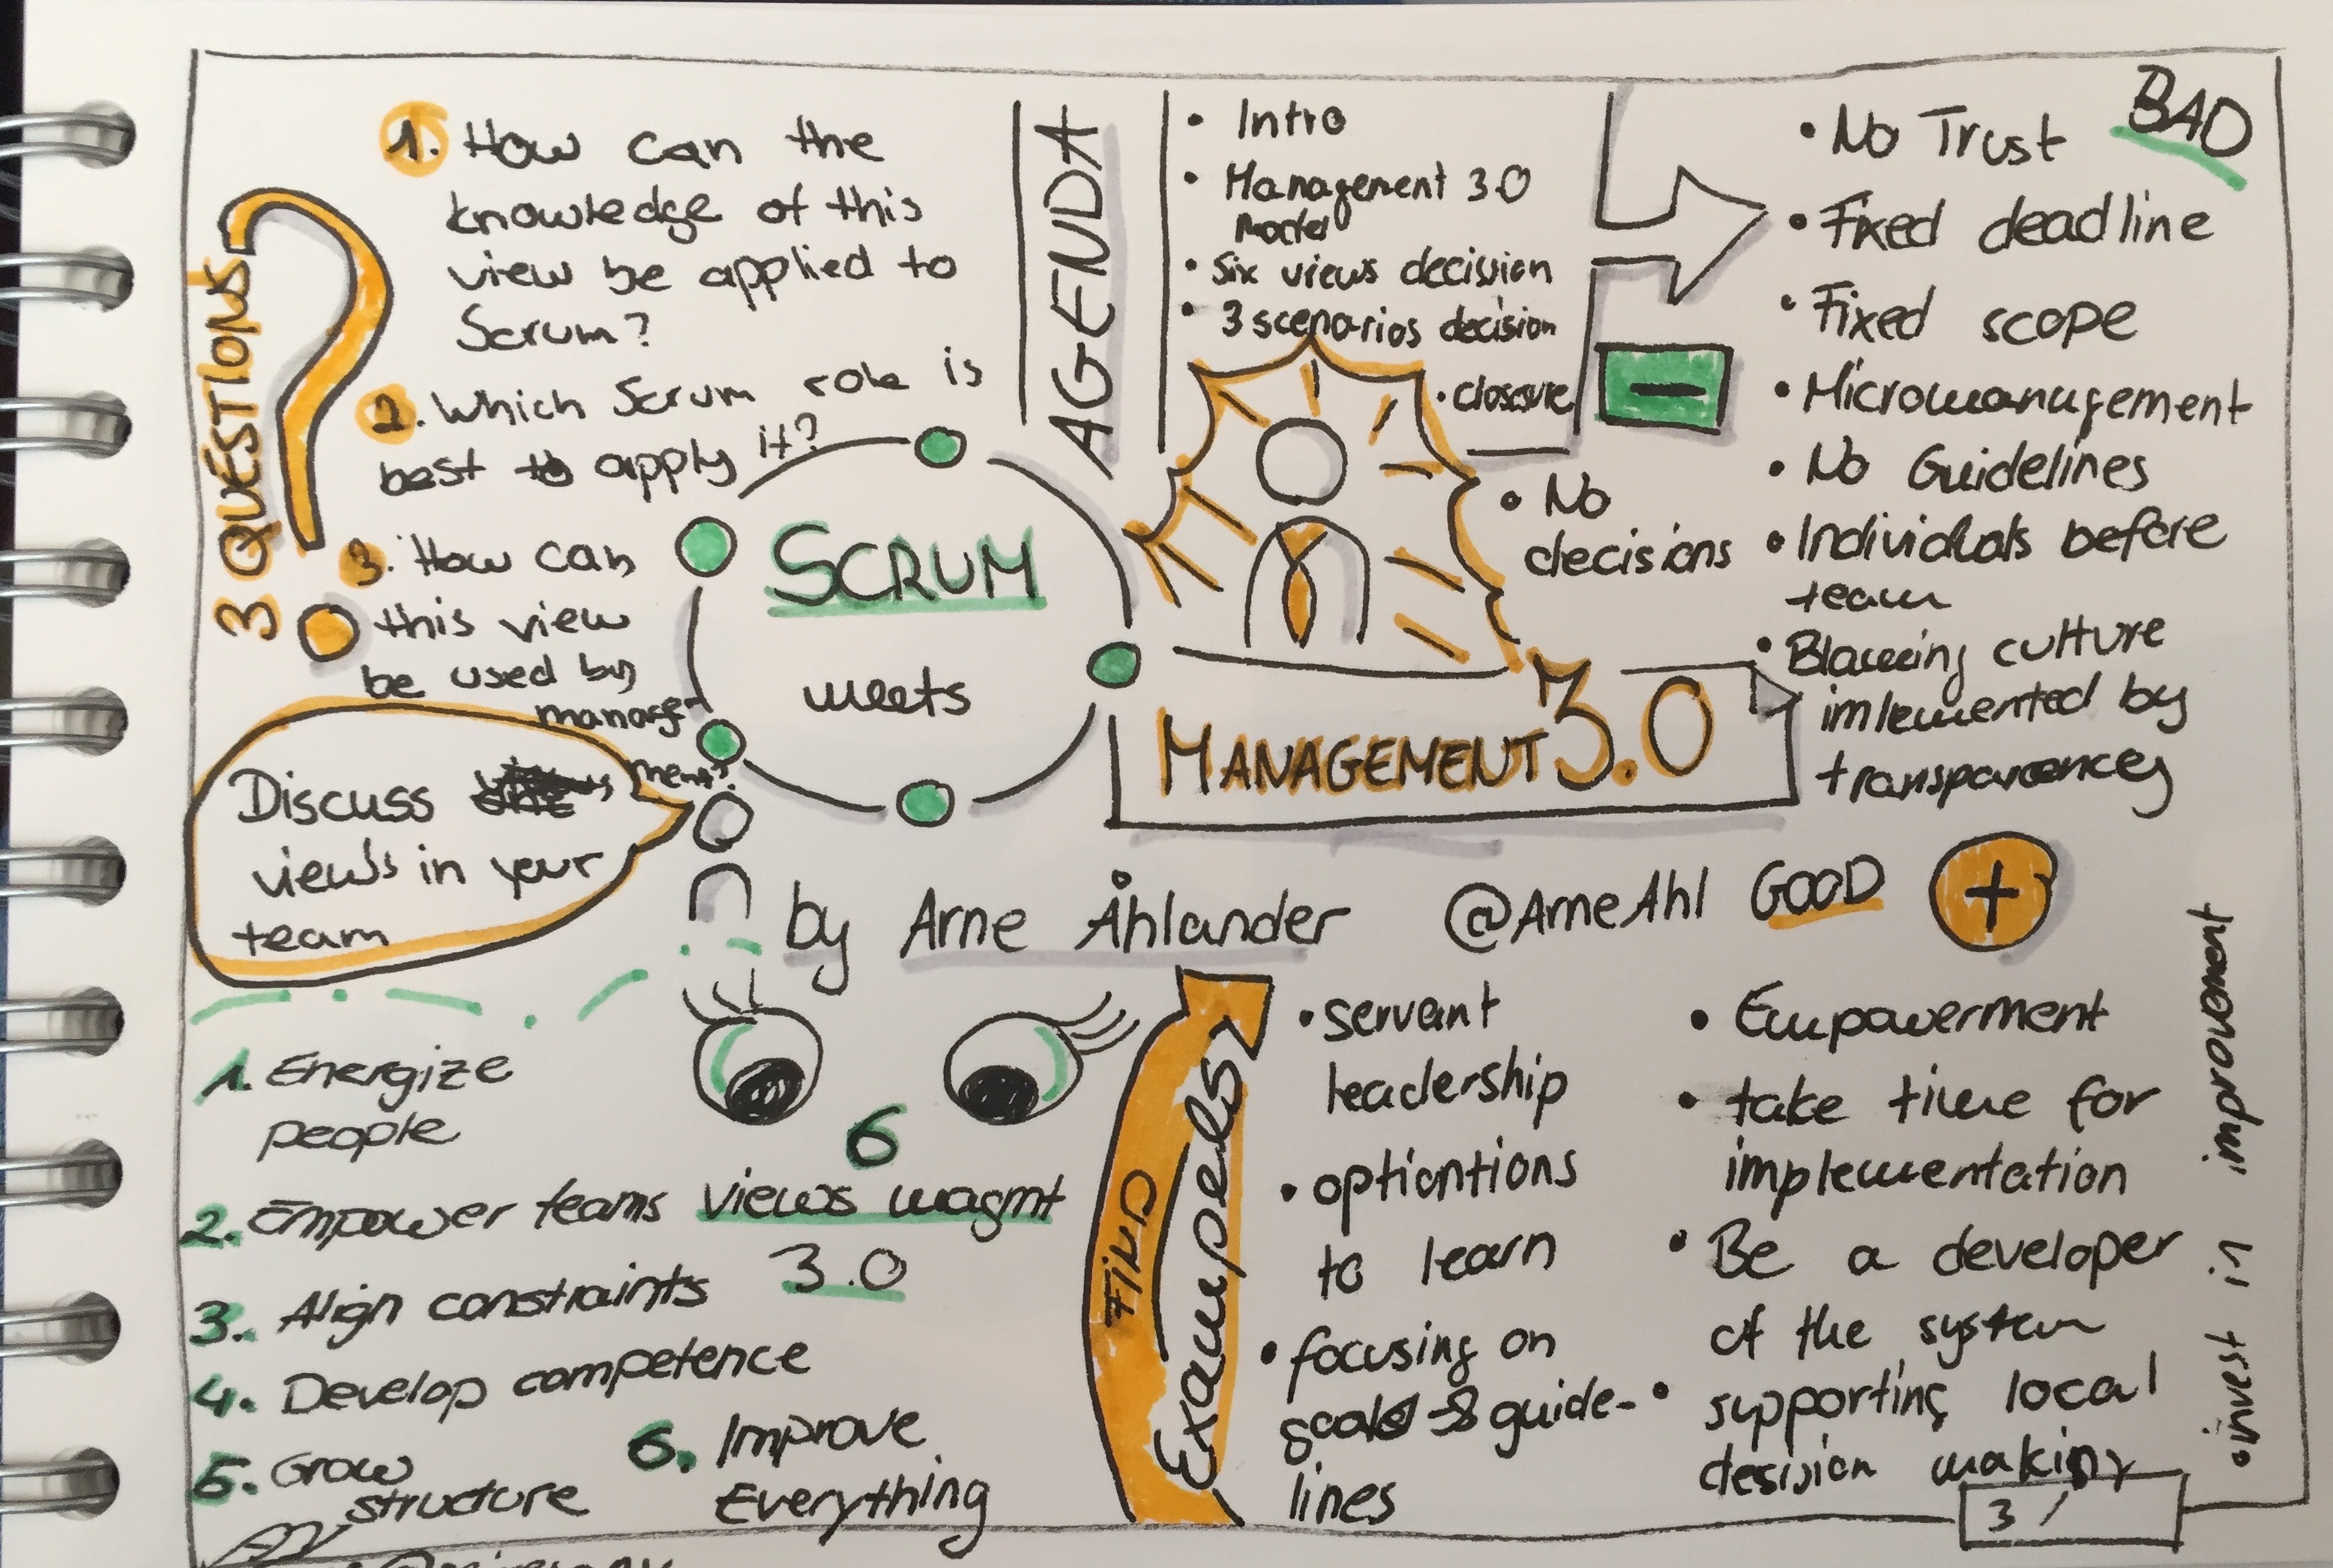 3 QUESTIONS
1. How can the
knowledge of this
view be applied to
Scrum?
2. Which Scrum role is
best to apply it?
3. How can
this view
be used by
manage-
ment?
Discuss
views in your
team
AGENDA
• Intro
• Management 3.0
Model
• Six views decision
• 3 scenarios decision
• closure
SCRUM
meets
MANAGEMENT 3.0
by Arne Åhlander @ArneAhl
BAD
• No Trust
• Fixed deadline
• Fixed scope
• Micromanagement
• No Guidelines
• Individuals before
team
• Blaming culture
imlemented by
transparency
• No
decisions
GOOD +
• servant
leadership
• optiontions
to learn
• focusing on
goals → guide-
lines
• Empowerment
• take time for
implementation
• Be a developer
of the system
• supporting local
desision making
• invest in improvement
FIND
Exampels
6
views magmt
3.0
1. Energize
people
2. Empower teams
3. Align constraints
4. Develop competence
5. Grow
structure
6. Improve
Everything
3 /